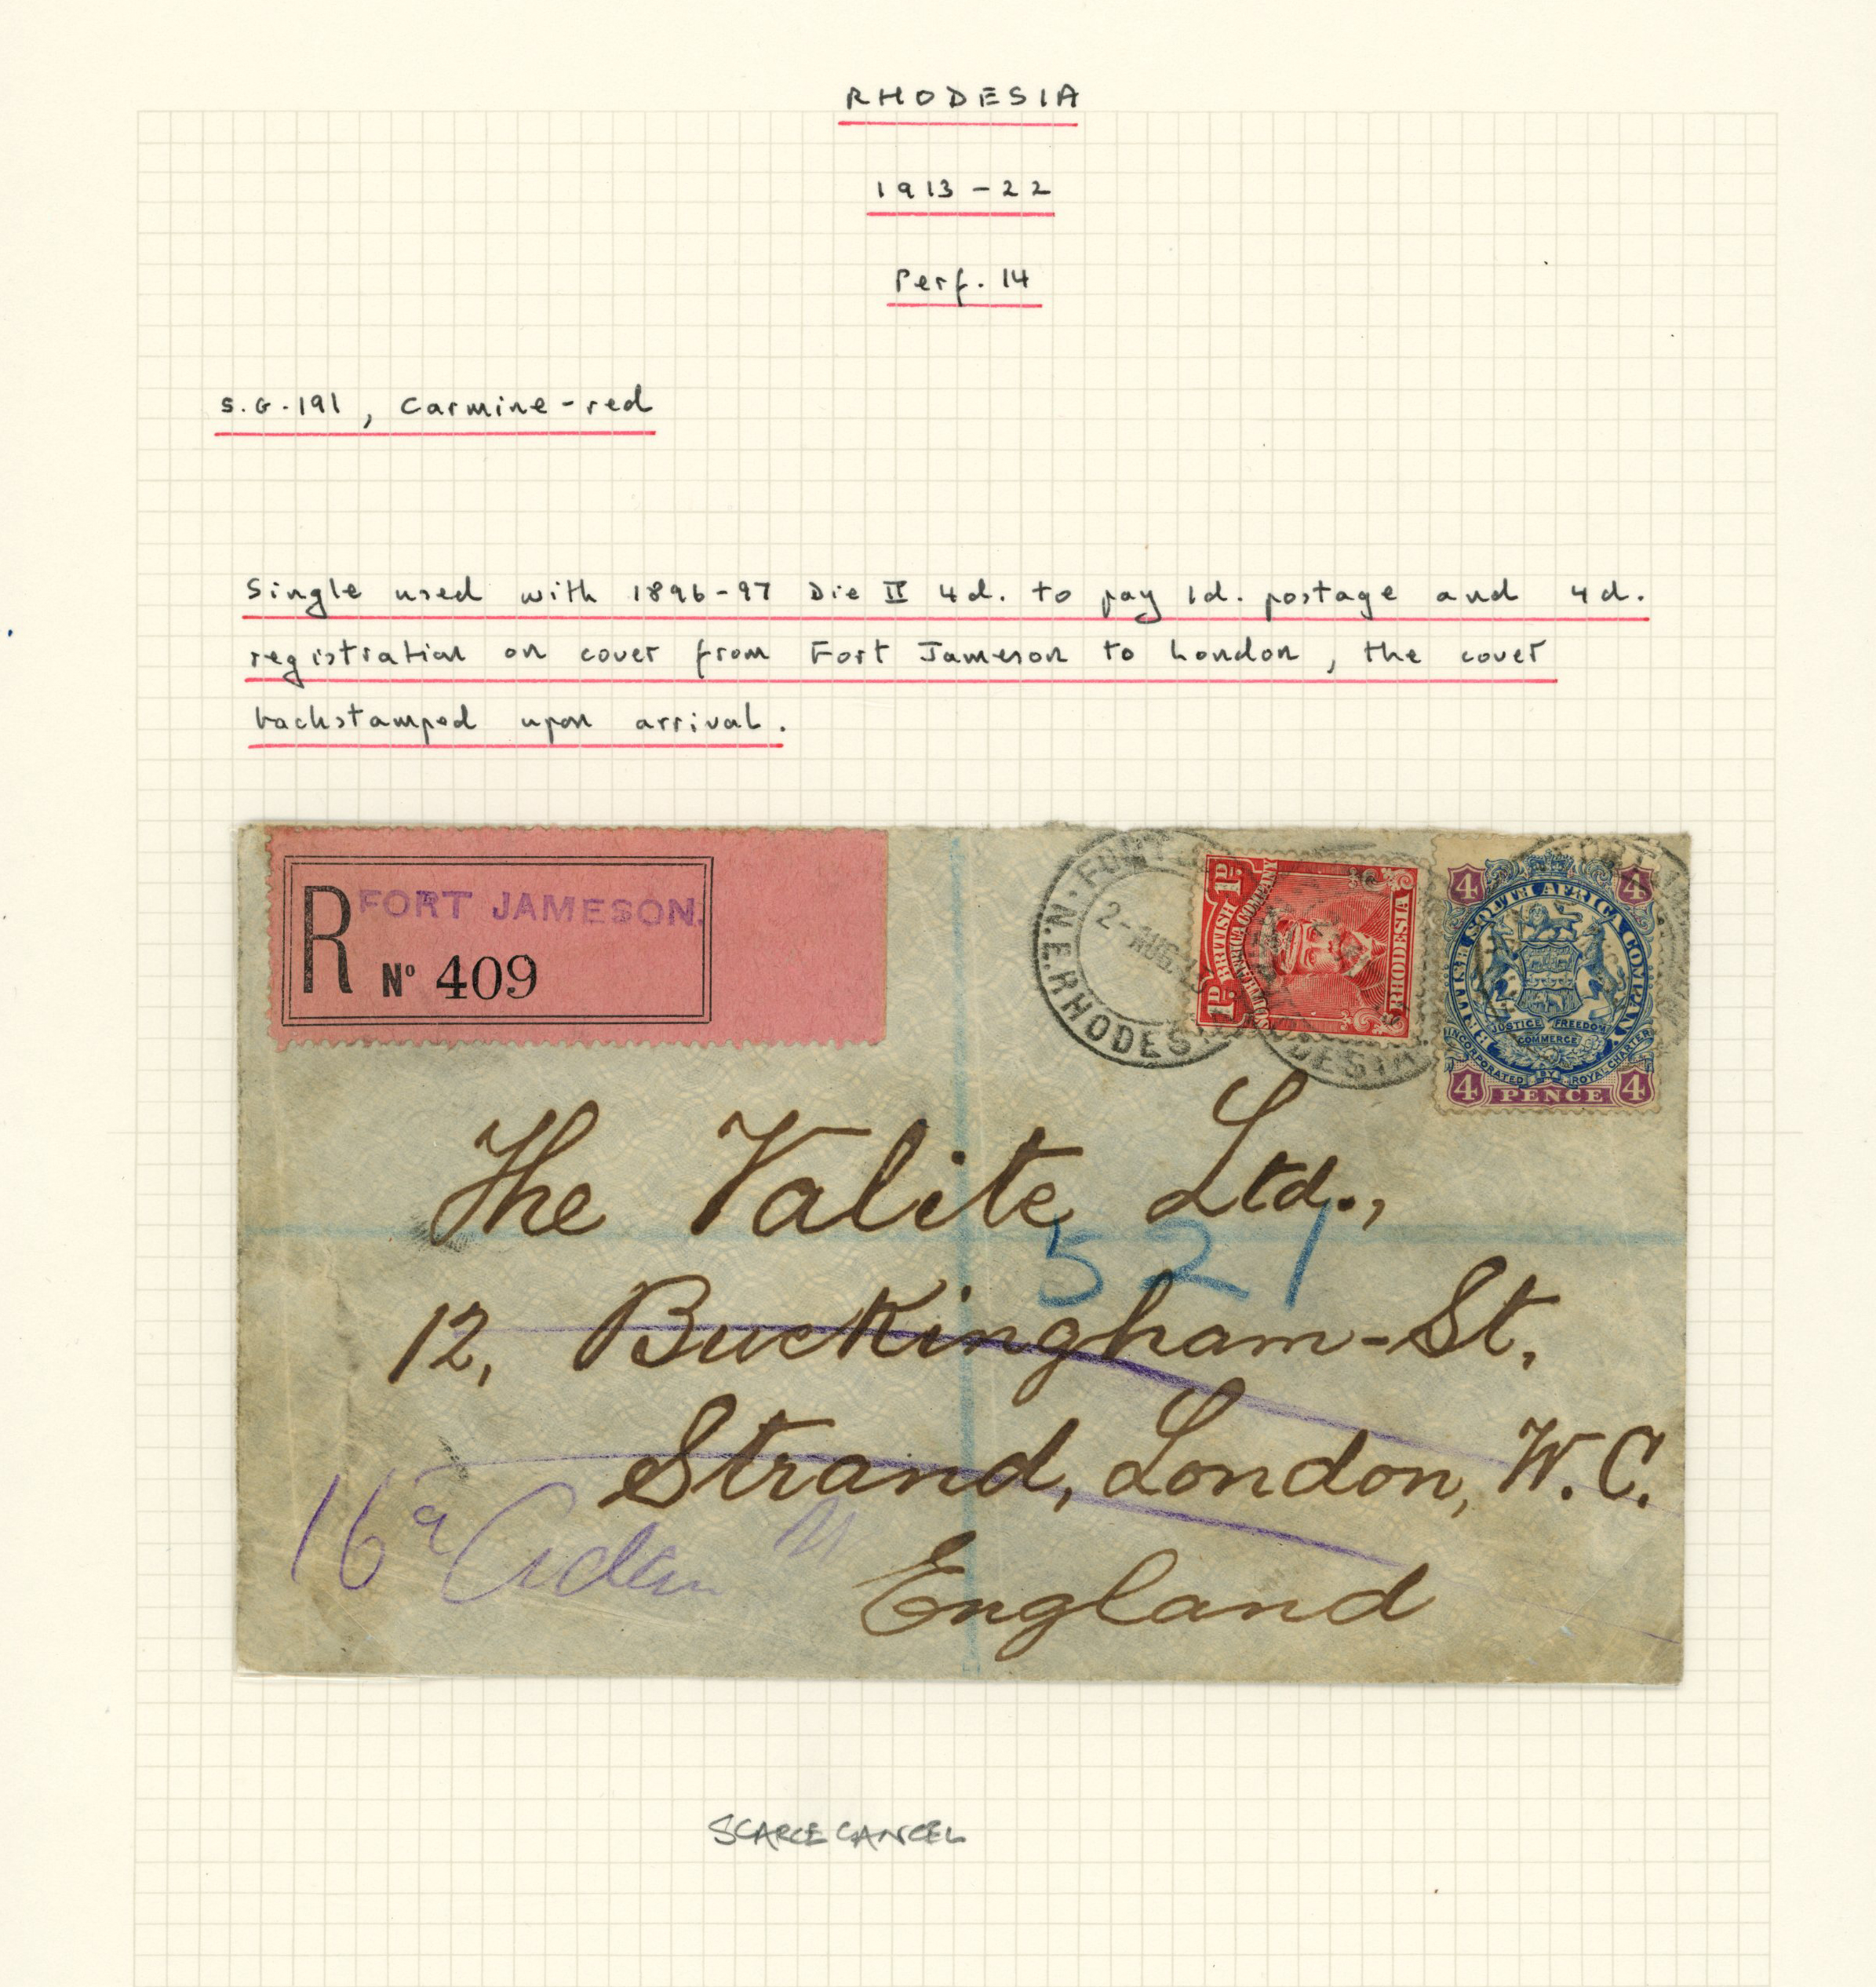 RHODESIA
1913-22
Perf. 14
S.G.191, Carmine-red
Single used with 1896-97 Die II 4d. to pay 1d. postage and 4d.
registration on cover from Fort Jameson to London, the cover
backstamped upon arrival.
R FORT JAMESON.
No 409
FORT
2-AUG.
N.E.RHODESIA
1D 1D
BRITISH SOUTH AFRICA COMPANY
RHODESIA
4 4
BRITISH SOUTH AFRICA COMPANY
JUSTICE FREEDOM
COMMERCE
INCORPORATED BY ROYAL CHARTER
4 PENCE 4
The Valite Ltd.,
521
12, Buckingham-St.
Strand, London, W.C.
16a
England
SCARCE CANCEL